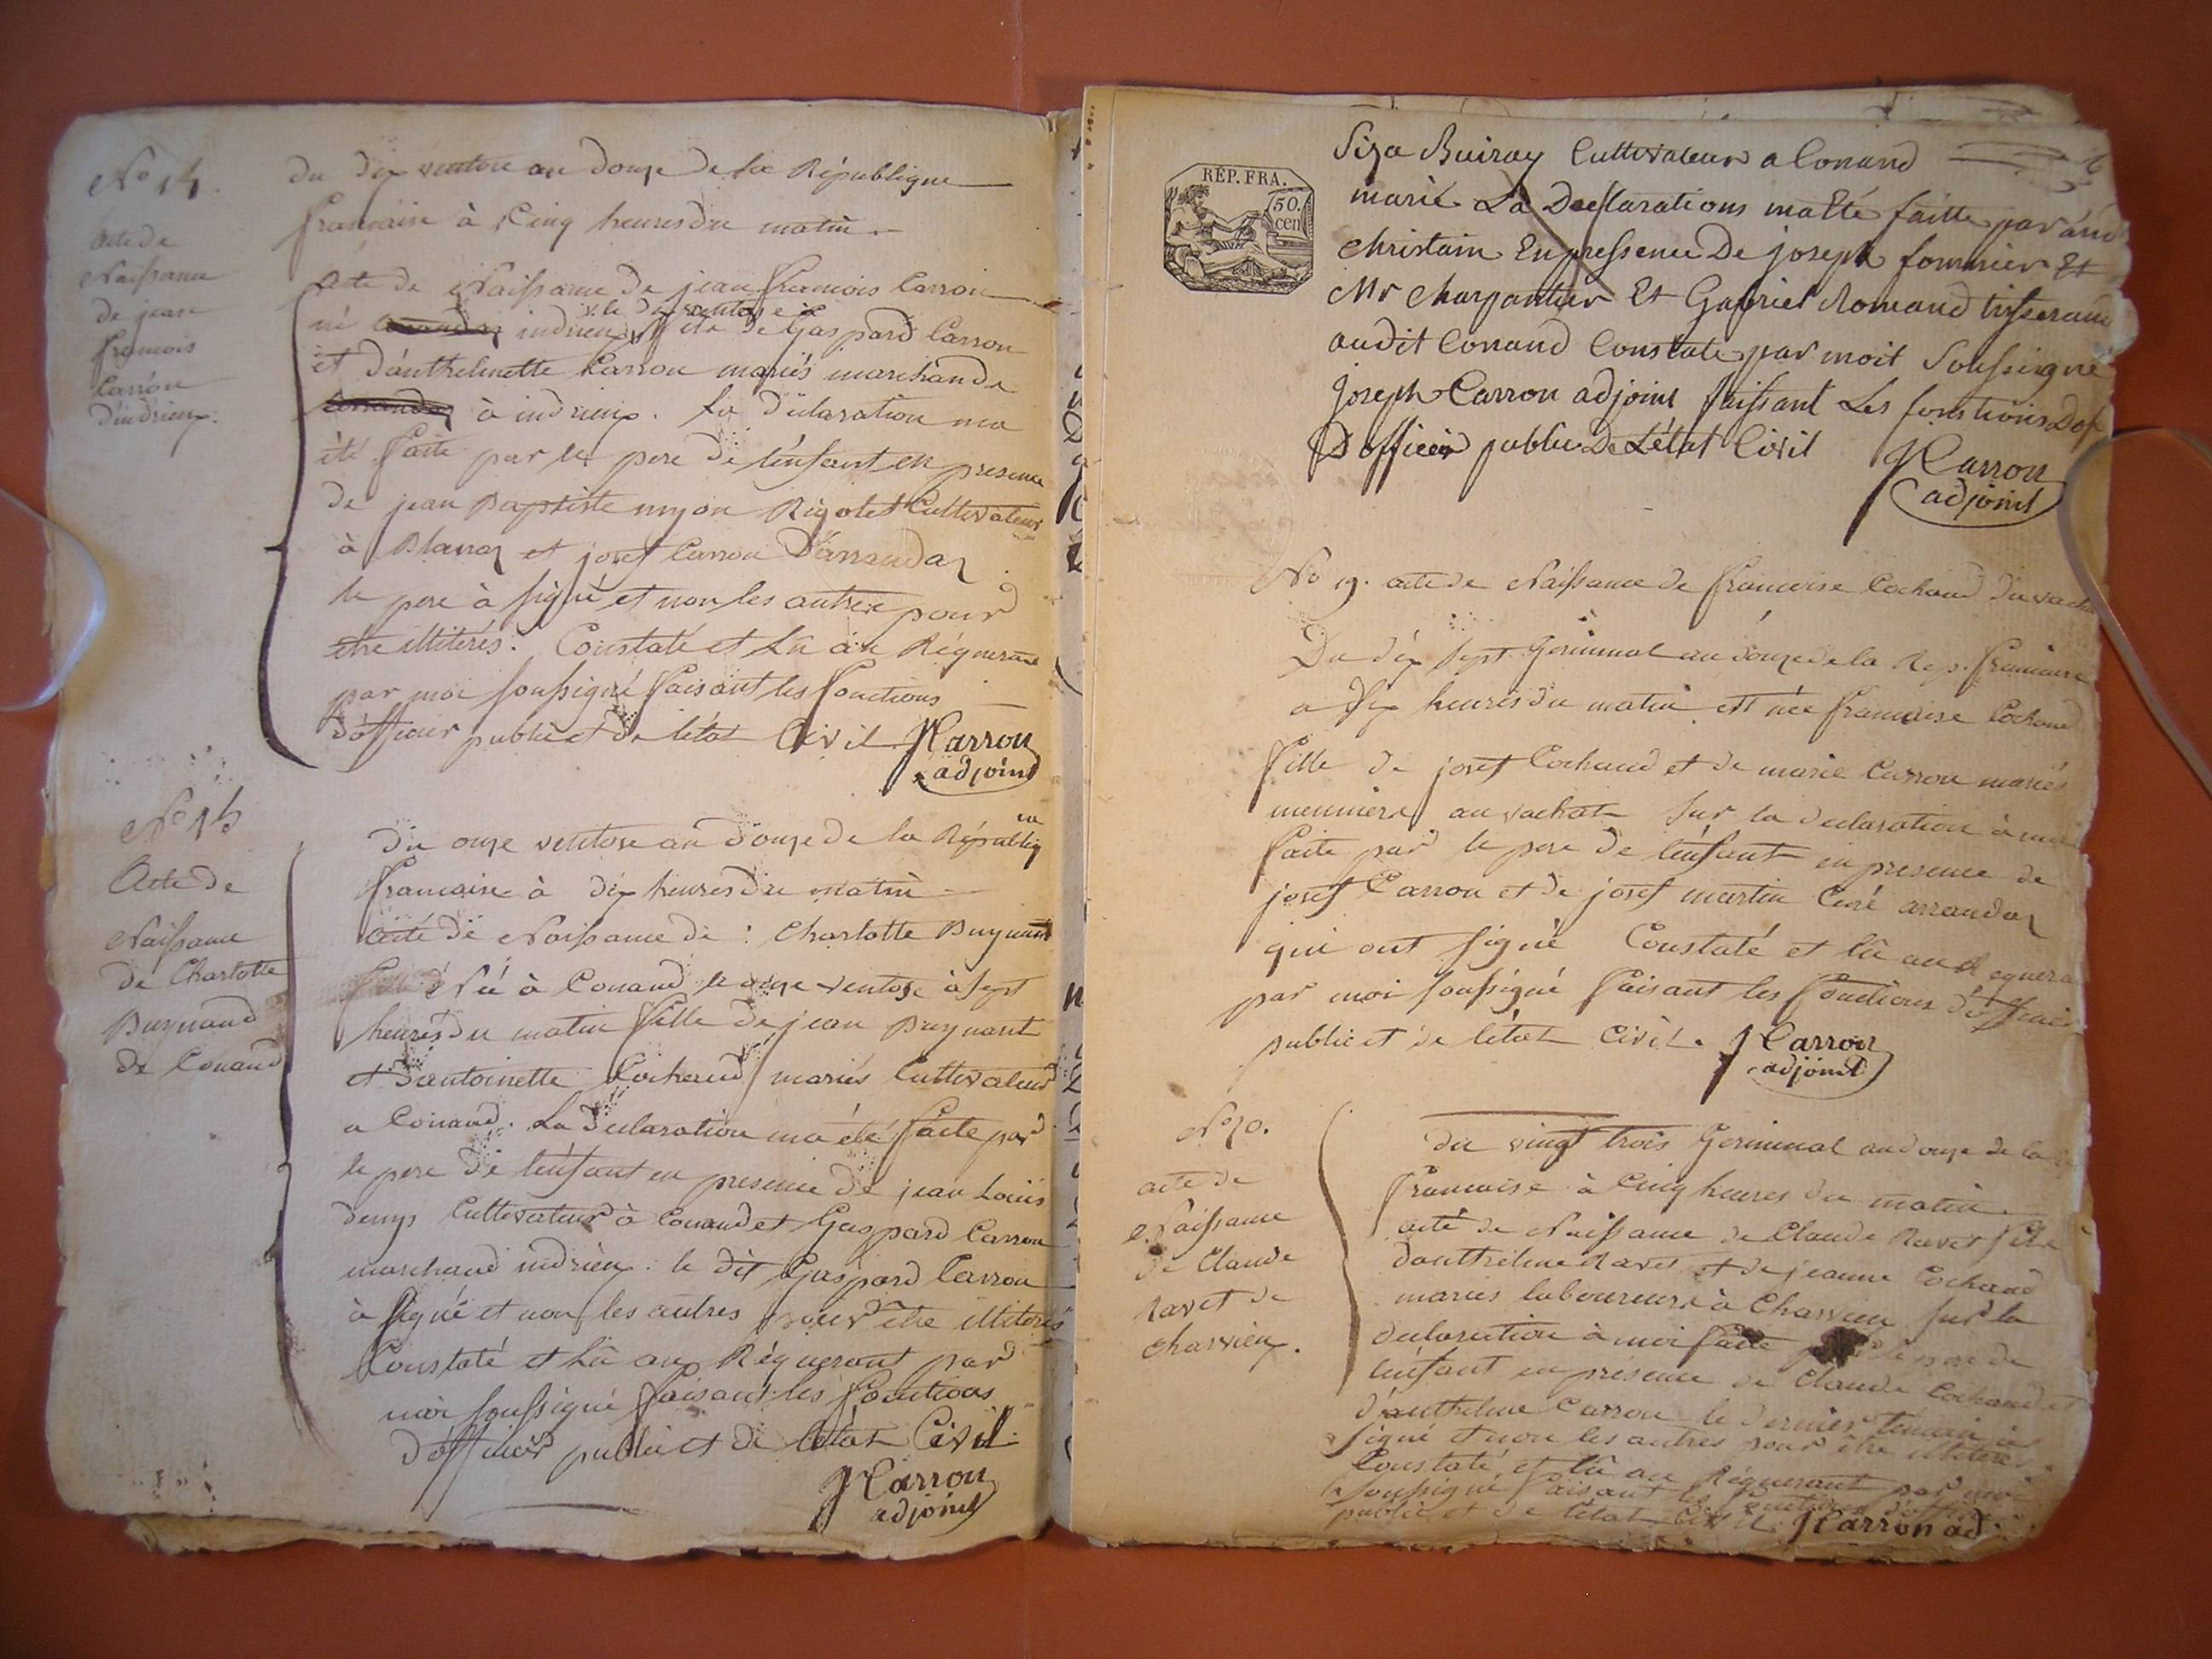 No 14.
acte de
Naissance
de jean
francois
Carron
d'indrieux.
du dix ventose an douze de la République
francaise à Cinq heures du matin
acte de Naissance de jean francois Carron
né indrieux le dix ventose fils de Gaspard Carron
et d'anthelmette Carron mariés marchands
à indrieux. la déclaration ma
été faite par le pere de l'enfant en presence
de jean Baptiste myon Rigolet Cultivateur
à Blanaz et josef Carron d'arrandaz
le pere à signé et non les autres pour
etre illitérés. Constaté et lû au Réquerant
par moi soussigné faisant les fonctions
d'officier public et de l'état Civil JCarron
adjoint
No 15
Acte de
Naissance
de Charlotte
Buynand
de Conand
du onze ventose an douze de la République
francaise à dix heures du matin
acte de Naissance de : Charlotte Buynand
Née à Conand le onze ventose à sept
heures du matin fille de jean Buynant
et d'antoinette Cochaud mariés Cultivateurs
a Conand. La déclaration ma été faite par
le pere de l'enfant en presence de jean Louis
denys Cultivateur à Conand et Gaspard Carron
marchand indrieux. le dit Gaspard Carron
à signé et non les autres pour etre illiterés
Constaté et lû au Réquerant par
moi soussigné faisant les fonctions
d'officier public et de l'état Civil
JCarron
adjoint
RÉP. FRA.
50.
cen
Buiray Cultivateur a Conand
marié La Declarations ma Eté faitte par
Christain En pressence De joseph fournier Et
Mr Charpantier Et Gabriel Romand tisserand
audit Conand Constate par moit Soussigné
joseph Carron adjoint faissant Les fonstions Dof
D officier public De L'état Civil JCarron
adjoint
No 19. acte de Naissance de francoise Cochaud du vachat
Du dix sept Germinal an douze de la Rep. francaise
a dix heures du matin est née francoise Cochaud
fille de josef Cochaud et de marie Carron mariés
meuniers au vachat sur la declaration à moi
faite par le pere de l'enfant en presence de
josef Carron et de josef martin Curé arrandaz
qui ont signé Constaté et lû au Requerant
par moi soussigné faisant les fonctions d'officier
public et de l'état Civil. JCarron
adjoint
No 20.
acte de
Naissance
de Claude
Ravet de
Charvieux.
du vingt trois Germinal an douze de la
francaise à Cinq heures du matin
acte de Naissance de Claude Ravet fils
d'anthelme Ravet et de jeanne Cochaud
mariés laboureurs à Charvieux sur la
declaration à moi faite le pere de
l'enfant en présence de Claude Cochaud et
d'anthelme Carron le dernier témoin à
signé et non les autres pour être illiteré
Constaté et lû au Réquerant par moi
soussigné faisant les fonctions d'officier
public et de l'état Civil JCarron ad